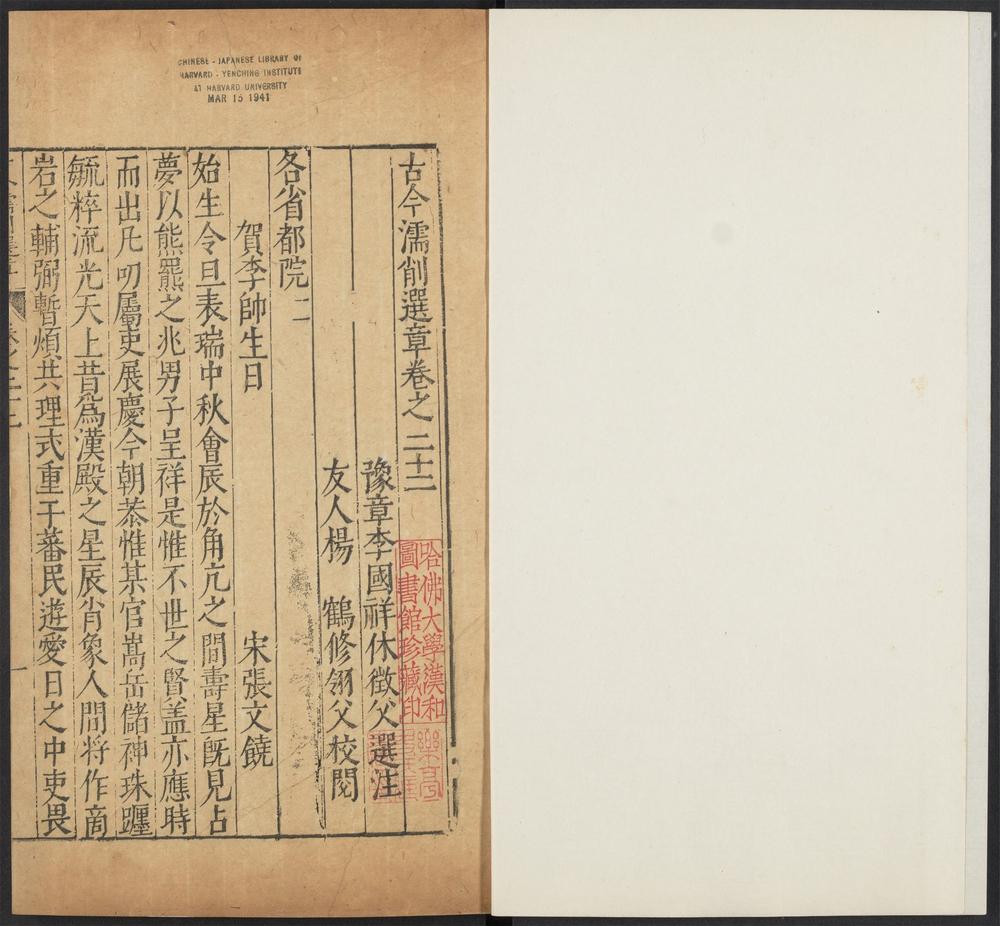 CHINESE - JAPANESE LIBRARY OF
HARVARD - YENCHING INSTITUTE
AT HARVARD UNIVERSITY
MAR 15 1941
古今濡削選章卷之二十二
豫章李國祥休徵父選注
友人楊 鶴修翎父校閱
各省都院二
賀李帥生日
宋張文饒
始生令旦表瑞中秋會辰於角亢之間壽星既見占
夢以熊羆之兆男子呈祥是惟不世之賢盖亦應時
而出凡叨屬吏展慶今朝恭惟某官嵩岳儲神珠躔
毓粹流光天上昔爲漢殿之星辰肖象人間將作商
岩之輔弼暫煩共理式重于蕃民遊愛日之中吏畏
哈佛大學漢和
圖書館珍藏印